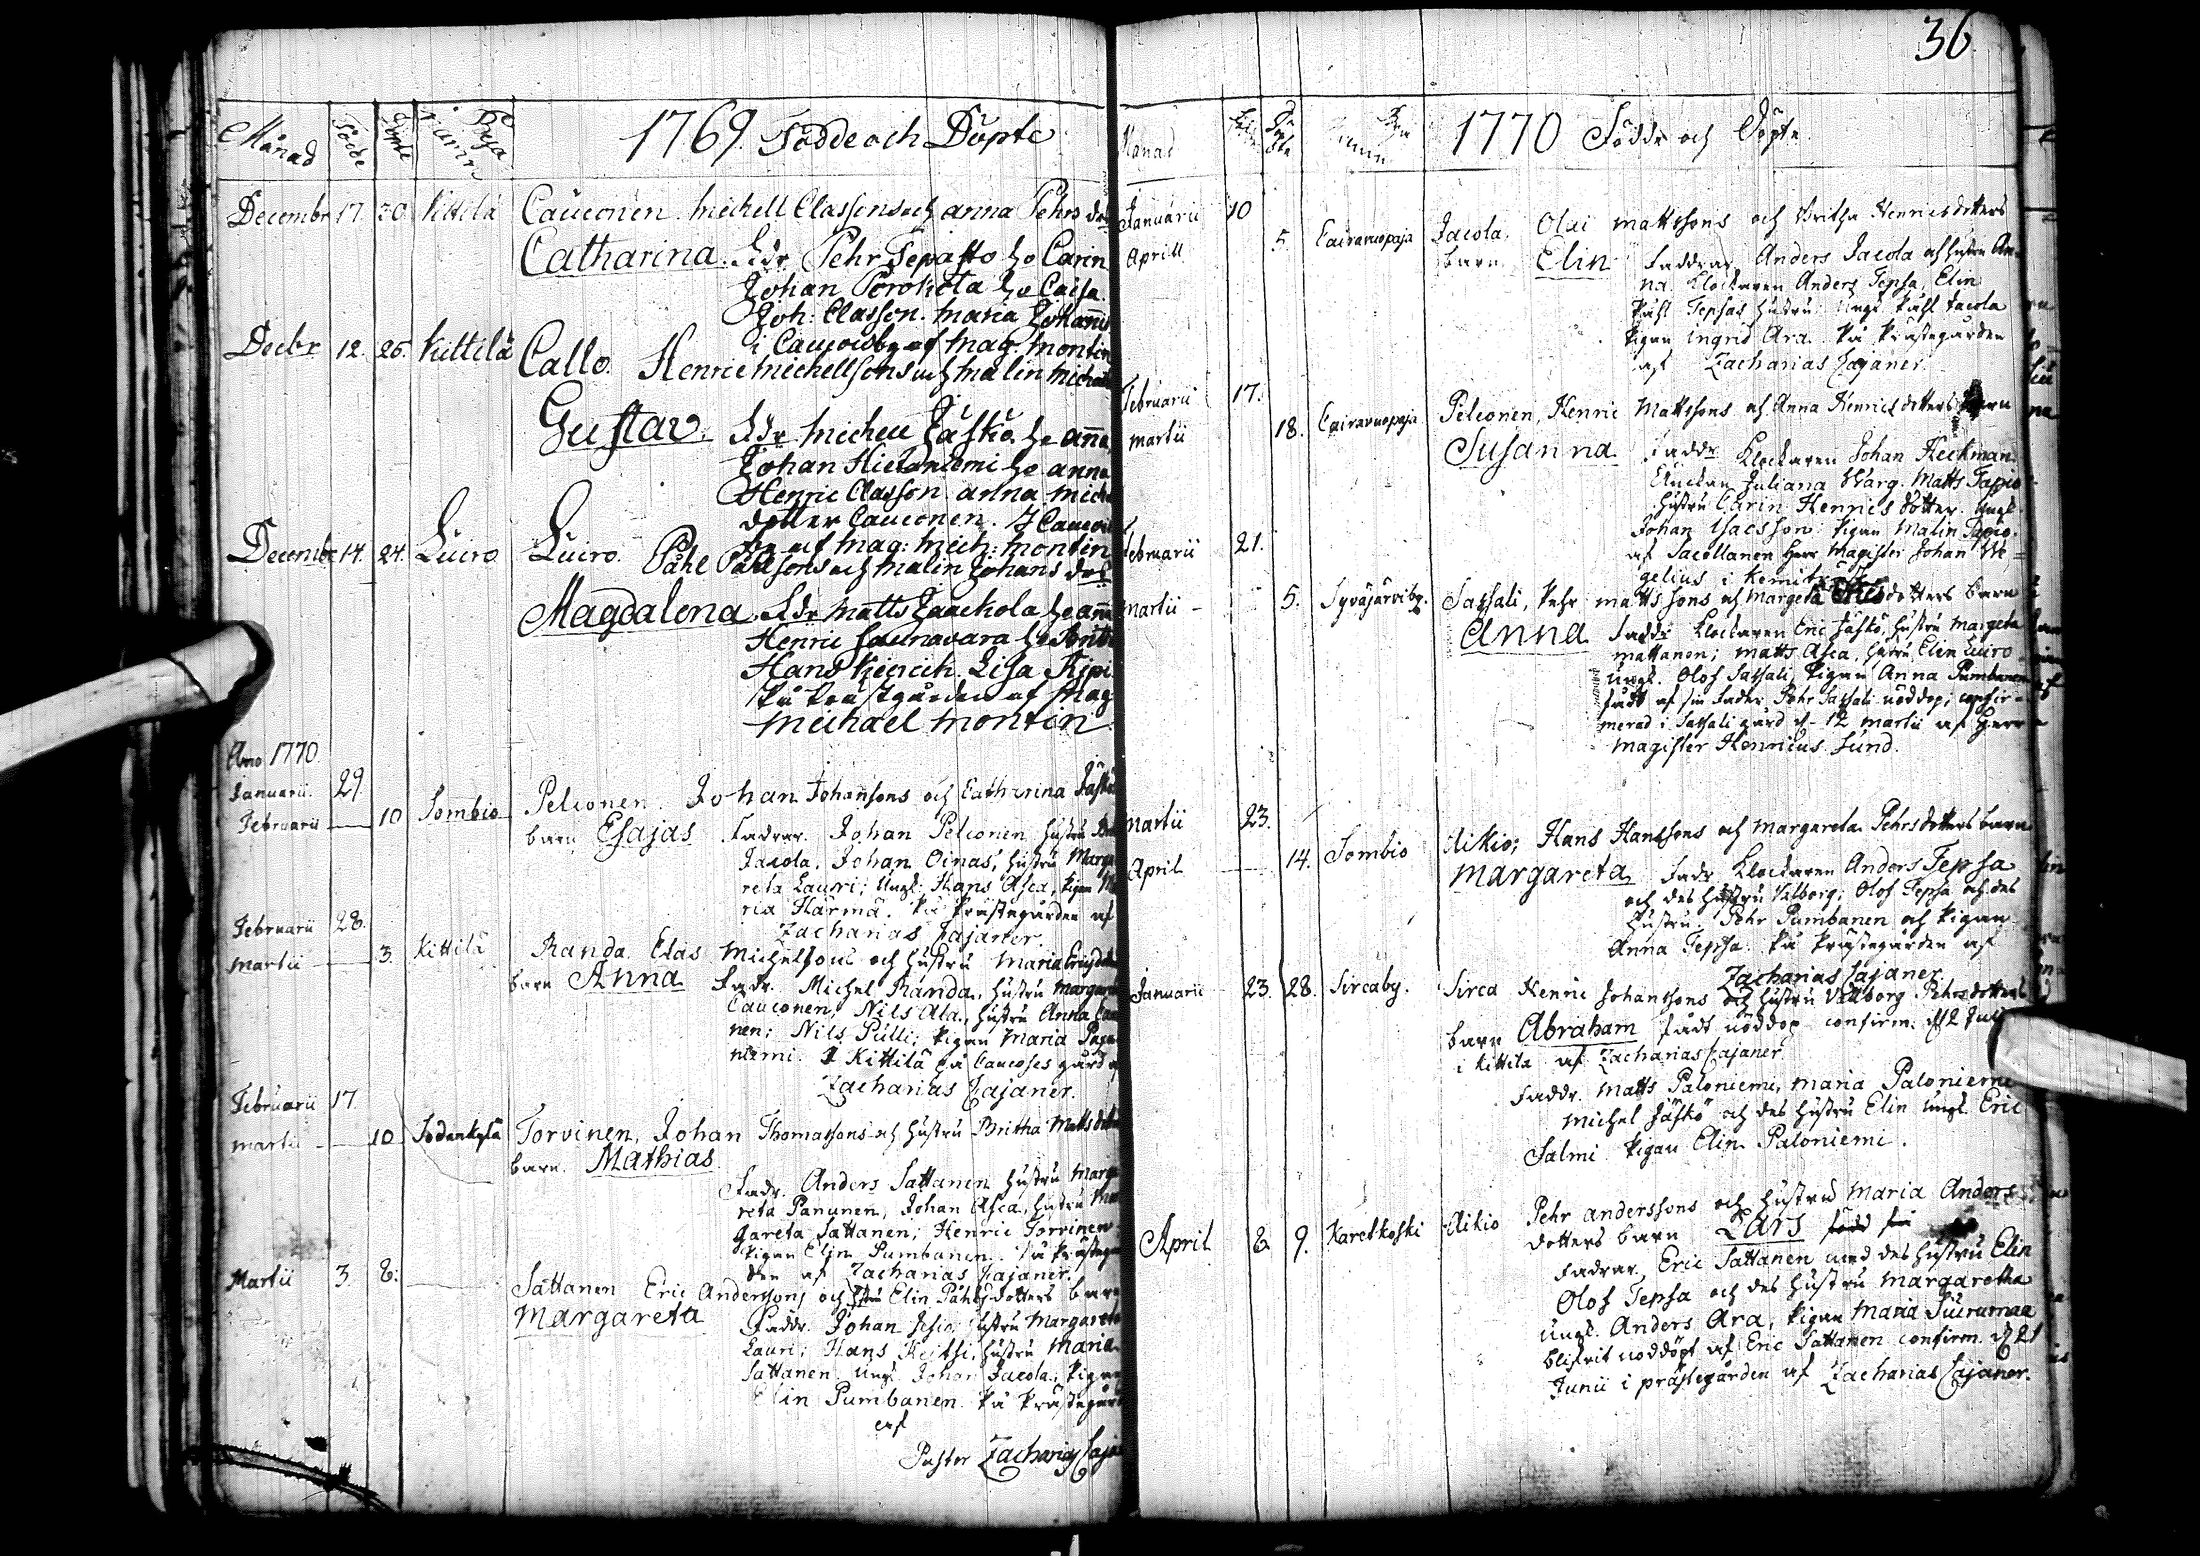 Månad Födde Döpte Byanamn 1769. Födde och Döpte
Decembr 17. 30. Kittilä Cauconen. Michell Classons och Anna Pehrs dot
Catharina. Fdr Pehr Tepasto ho Carin
Johan Porokota ho Caisa.
Joh: Classon. Maria Johannis
i Caucoisby af Mag. Montin
Decbr 12. 26. Kittilä Callo. Henric Michellsons och Malin Michels
Gustav. Fdr Michell Jäskö. ho Anna
Johan Hietaniemi ho Anna
Henric Classon. Anna Michels
dotter Cauconen. I Caucois
by af Mag: Mich: Montin
Decembr 14. 24. Luiro Luiro. Påhl Påhlsons och Malin Johans dot
Magdalena. Fdr Matts Jaackola ho Anna
Henric Saunavara ho
Hans Keinich. Lisa Kipi
På Prästgården af Mag
Michael Montin
Ano 1770.
Januarii. 29.
Februarii 10 Sombio Pelconen. Johan Johansons och Catharina Jäskö
barn Esajas Fadrar. Johan Pelconen hustru
Jacola. Johan Oinas, hustru Marga
reta Lauri; Ungk: Hans Asca, Pigan Ma
ria Härmä. På Prästegården af
Zacharias Cajaner.
Februarii 28.
Martii 3. Kittilä Randa Elias Michelsons och hustru Maria Ericsdotters
barn Anna Fadr. Michel Randa, hustru Margareta
Cauconen, Nils Ala, hustru Anna Cauco
nen; Nils Pulli; Pigan Maria
niemi. I Kittilä på Caucoses gård af
Zacharias Cajaner.
Februarii 17.
Martii 10 Sodankylä Torvinen, Johan Thomassons och hustru Britha Matsdotters
barn. Mathias.
Fadr. Anders Sattanen hustru Marga
reta Panunen, Johan Asca, hustru Mar
gareta Sattanen; Henric Torvinen
Pigan Elin Pumbanen. På Prästegår
den af Zacharias Cajaner.
Martii 3. 8. Sattanen Eric Anderssons och hustru Elin Påhlsdotters barn
Margareta Faddr. Johan Sesio, hustru Margareta
Lauri; Hans Keitsi, hustru Maria
Sattanen Ungk. Johan Jacola, Pigan
Elin Pumbanen. På Prästegård
af
Pastor Zacharias Cajaner
36
Månad Födde Döpte Byanamn 1770 Födde och Döpte.
Januarii 10
Aprill 5. Cairavuopaja Jacola, Olai Mattssons och Britha Henricsdotters
barn Elin Faddrar Anders Jacola och hustru An
na. Klockaren Anders Tepsa, Elin
Påhl Tepsas hustru Ungk Påhl Jacola
Pigan Ingrid Ara. På Prästegården
af Zacharias Cajaner.
Februarii 17.
Martii 18. Cairavuopaja Pelconen, Henric Mattssons och Anna Henricsdotters barn
Susanna Faddr. Klockaren Johan Heckman.
Enckan Juliana Warg. Matts Tapio
hustru Carin Henrics dotter. Ungk.
Johan Isacsson. Pigan Malin Tapio.
af Sacellanen Herr Magister Johan We=
gelius i Kemiträsk
Februarii 21.
Martii 5. Syväjärviby. Sassali, Pehr Mattssons och Margeta dotters barn
Anna Faddr. Klockaren Eric Jäskö, hustru Margeta
Mattanen; Matts Asca, hustru Elin Luiro
Ungk. Olof Sassali, Pigan Anna Pumbanen
Fått af sin Fader Pehr Sassali nöddop; confir=
merad i Sassali gård d. 12 Martii af Herr
Magister Henricus Sund.
Martii 23.
April 14. Sombio Aikio; Hans Hanssons och Margareta Pehrsdotters barn
Margareta. Fadr Klockaren Anders Tepsa
och des hustru Valborg; Olof Tepsa och des
hustru. Pehr Pumbanen och Pigan
Anna Tepsa. På Prästegården af
Zacharias Cajaner.
Januarii 23. 28. Sircaby. Sirca Henric Johanssons och hustru Vallborg Pehrsdotters
barn Abraham fådt nöddop confirm: d 2 Julii
i Kittilä af Zacharias Cajaner.
Faddr. Matts Paloniemi, Maria Paloniemi
Michel Jäskö och des hustru Elin Ungk. Eric
Salmi Pigan Elin Paloniemi.
April 8 9. Karetkoski Aikio Pehr Anderssons och hustru Maria Anders
dotters barn Lars
Fadrar. Eric Sattanen med des hustru Elin
Olof Tepsa och des hustru Margaretha
Ungk. Anders Ara, Pigan Maria Suiramaa
Blifvit nöddöpt af Eric Sattanen confirm. d 21
Junii i prästegården af Zacharias Cajaner.